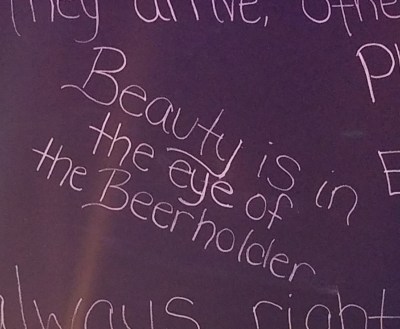 They arrive, othe
P
Beauty is in
the eye of
the Beerholder
E
always right